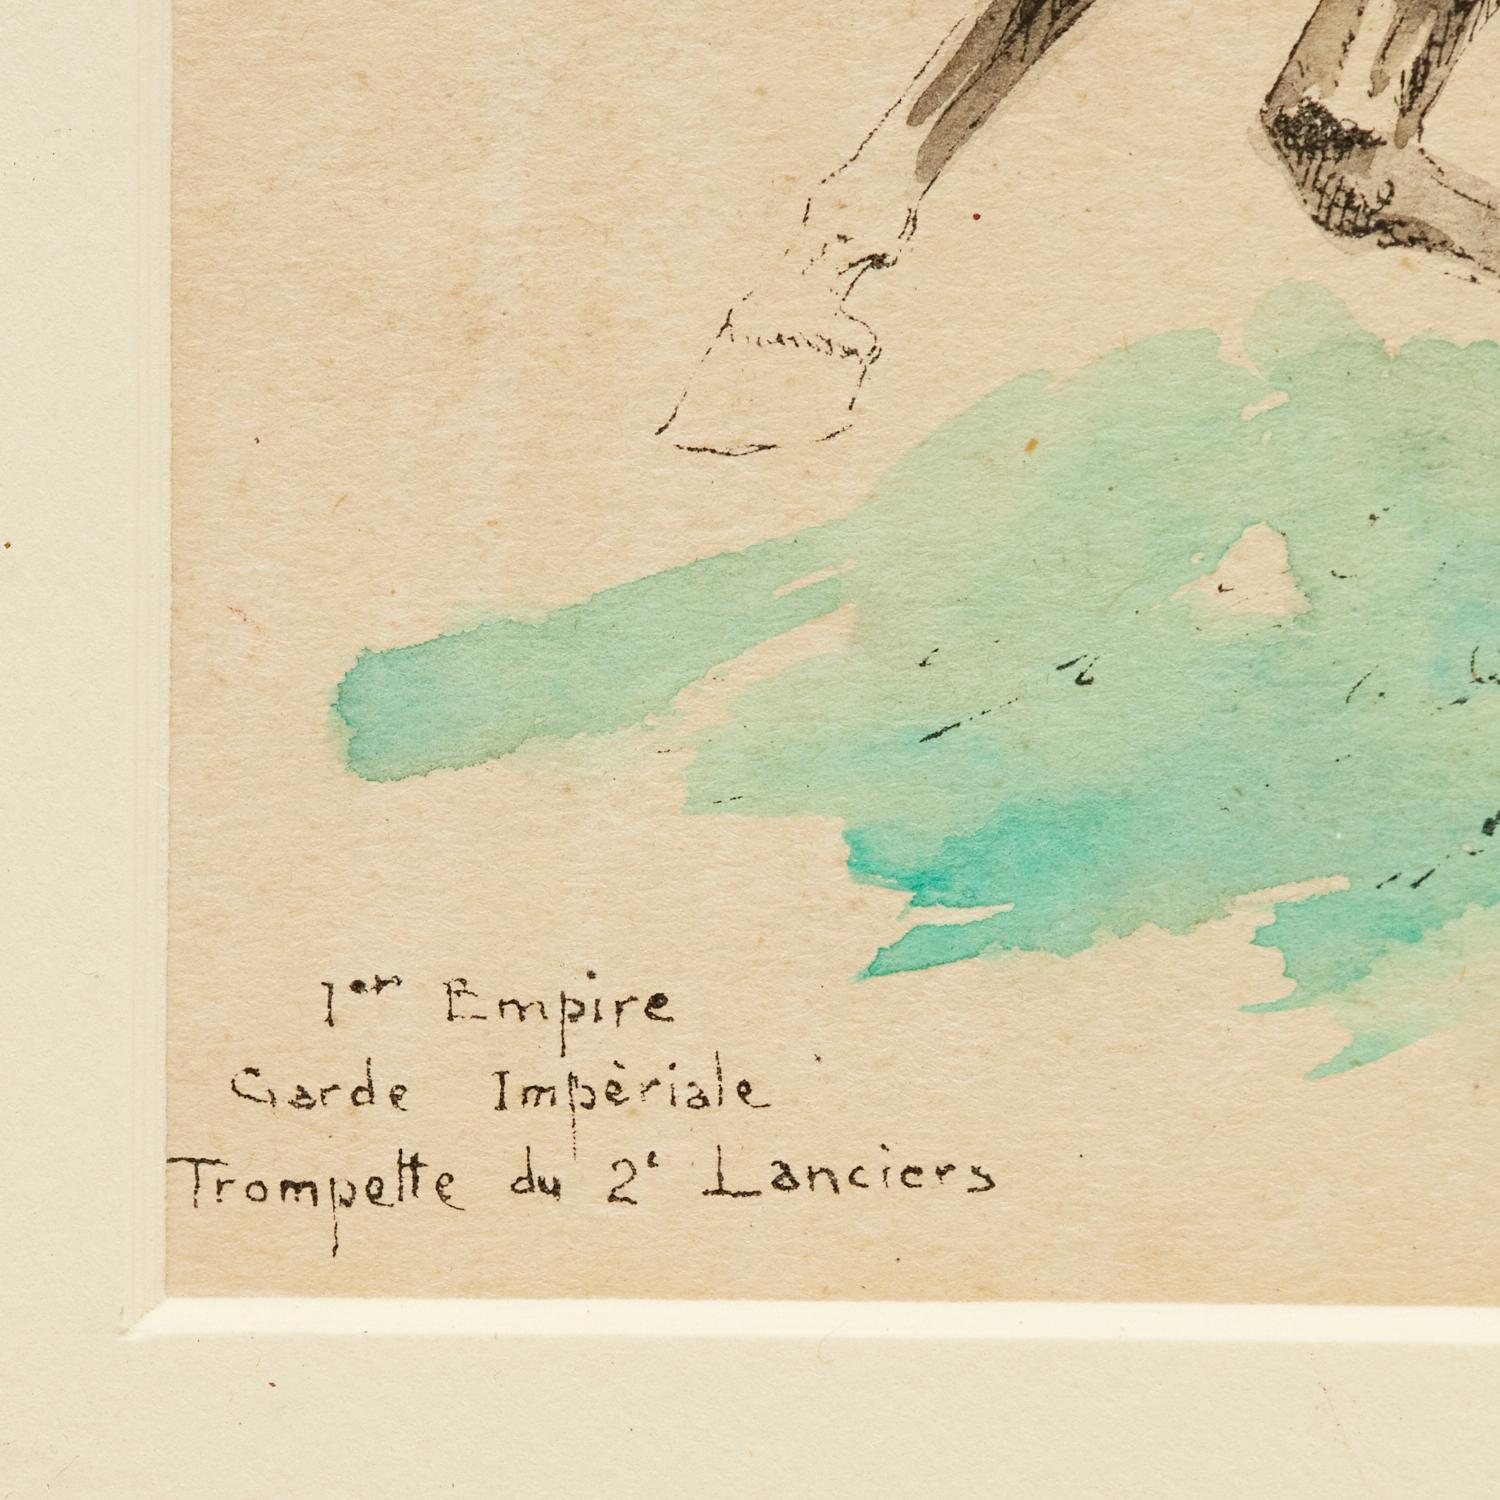 1er Empire
Garde Impèriale
Trompette du 2e Lanciers